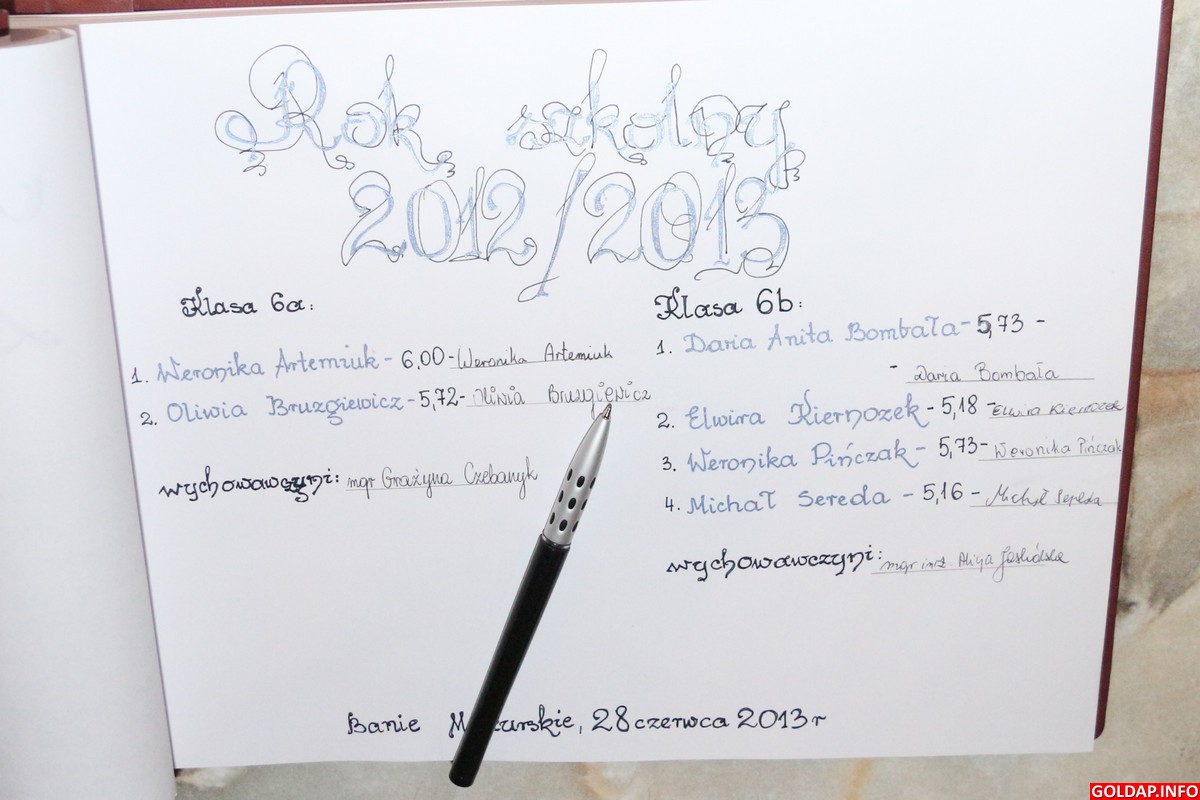 Rok szkolny
2012/2013
Klasa 6a:
1. Weronika Artemiuk - 6,00 - Weronika Artemiuk
2. Oliwia Bruzgiewicz - 5,72 - Oliwia Bruzgiewicz
wychowawczyni: mgr Grażyna Czebanyk
Klasa 6b:
1. Daria Anita Bombała - 5,73 -
- Daria Bombała
2. Elwira Kiernozek - 5,18 - Elwira Kiernozek
3. Weronika Pińczak - 5,73 - Weronika Pińczak
4. Michał Sereda - 5,16 - Michał Sereda
wychowawczyni: mgr inż. Alicja
Banie M zurskie, 28 czerwca 2013 r
GOLDAP.INFO